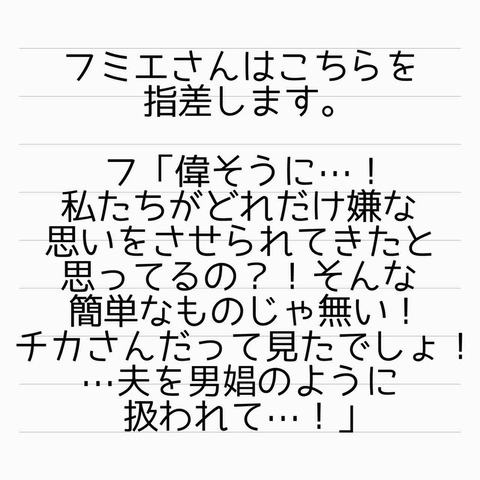 フミエさんはこちらを
指差します。
フ「偉そうに…！
私たちがどれだけ嫌な
思いをさせられてきたと
思ってるの？！そんな
簡単なものじゃ無い！
チカさんだって見たでしょ！
…夫を男娼のように
扱われて…！」